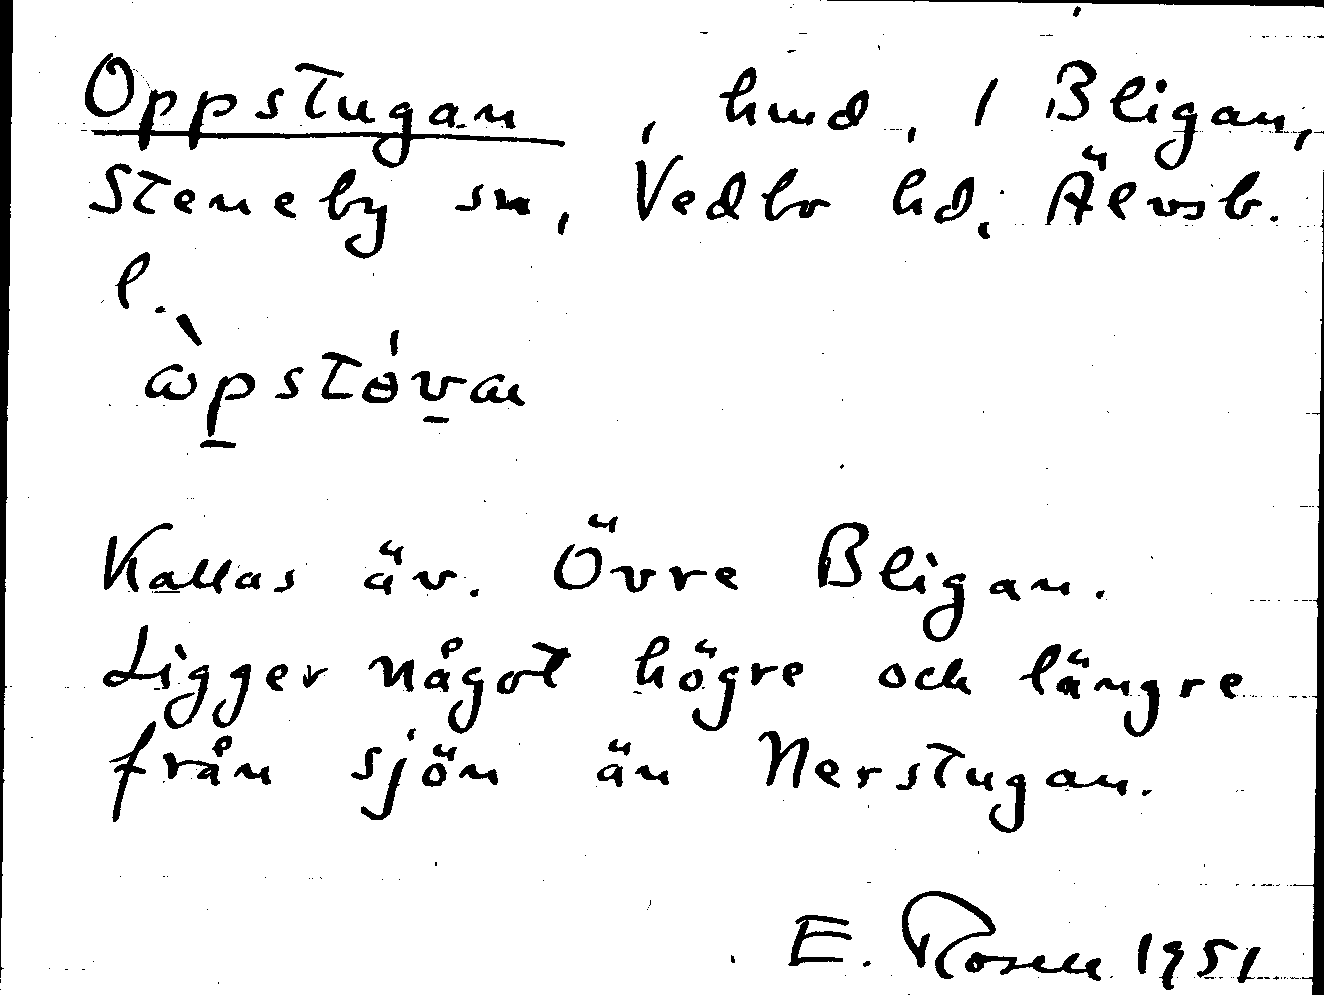 Oppstugan, hmd, 1 Bligan,
Steneby sn, Vedbo hd, Älvsb.
l.
Kallas äv. Övre Bligan.
Ligger något högre och längre
från sjön än Nerstugan.
E. Rosell 1951